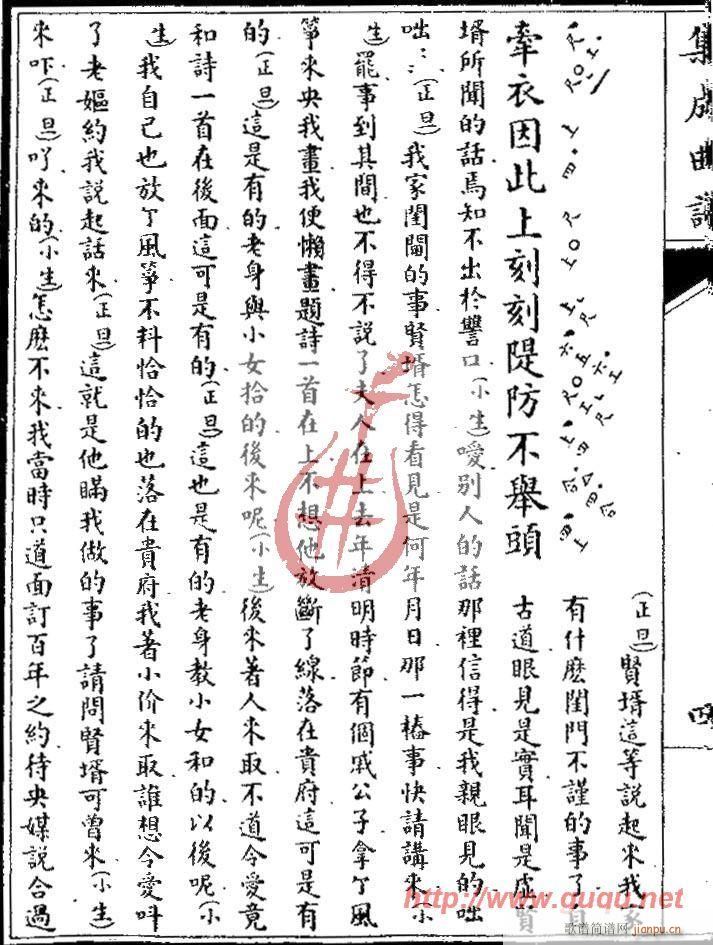 集成曲譜
四
牽衣因此上刻刻隄防不舉頭
(正旦)賢壻這等說起來我家
有什麽閨門不謹的事了自
古道眼見是實耳聞是虛賢
壻所聞的話焉知不出於讐口(小生)噯別人的話那裡信得是我親眼見的咄
咄:::(正旦)我家閨閫的事賢壻怎得看見是何年月日那一樁事快請講來(小
生)罷事到其間也不得不說了夫人在上去年清明時節有個戚公子拿了風
箏來央我畫我便懶畫題詩一首在上不想他放斷了線落在貴府這可是有
的(正旦)這是有的老身與小女拾的後來呢(小生)後來著人來取不道令愛竟
和詩一首在後面這可是有的(正旦)這也是有的老身教小女和的以後呢(小
生)我自己也放了風箏不料恰恰的也落在貴府我著小价來取誰想令愛叫
了老嫗約我說起話來(正旦)這就是他瞞我做的事了請問賢壻可曾來(小生)
來吓(正旦)吖來的(小生)怎麽不來我當時只道面訂百年之約待央媒說合過
http://www.ququ.net
歌谱简谱网
jianpu.cn